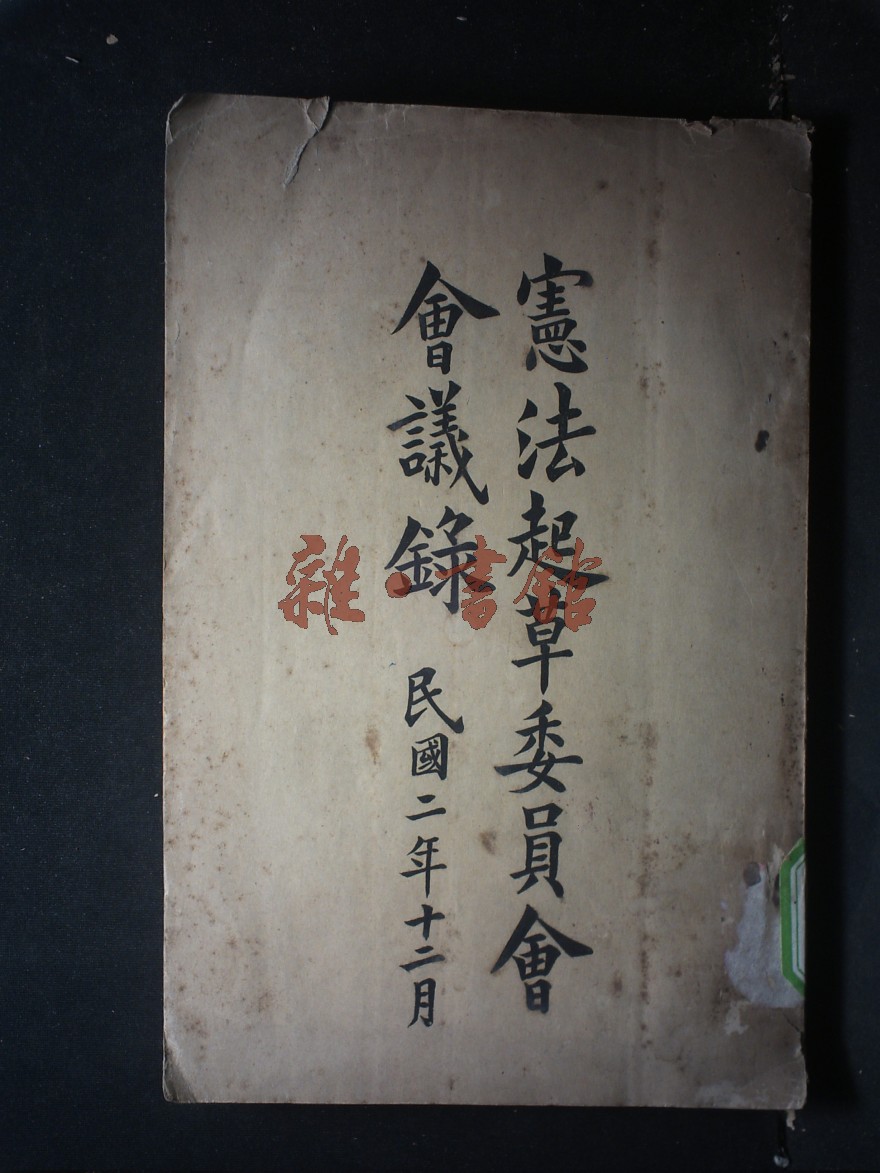 憲法起草委員會
會議錄 民國二年十二月
雜·書館